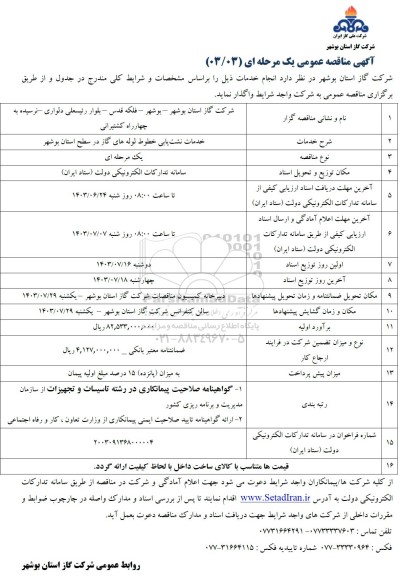 شرکت ملی گاز ایران
شرکت گاز استان بوشهر
آگهی مناقصه عمومی یک مرحله ای (۰۳/۰۳)
شرکت گاز استان بوشهر در نظر دارد انجام خدمات ذیل را براساس مشخصات و شرایط کلی مندرج در جدول و از طریق
برگزاری مناقصه عمومی به شرکت واجد شرایط واگذار نماید.
۱ نام و نشانی مناقصه گزار شرکت گاز استان بوشهر – بوشهر –فلکه قدس – بلوار رئیسعلی دلواری –نرسیده به
چهارراه کشتیرانی
۲ شرح خدمات خدمات نشت‌یابی خطوط لوله های گاز در سطح استان بوشهر
۳ نوع مناقصه یک مرحله ای
۴ مکان توزیع و تحویل اسناد سامانه تدارکات الکترونیکی دولت (ستاد ایران)
۵ آخرین مهلت دریافت اسناد ارزیابی کیفی از
سامانه تدارکات الکترونیکی دولت (ستاد ایران)
تا ساعت ۰۸:۰۰ روز شنبه ۱۴۰۳/۰۶/۲۴
۶ آخرین مهلت اعلام آمادگی و ارسال اسناد
ارزیابی کیفی از طریق سامانه تدارکات
الکترونیکی دولت (ستاد ایران)
تا ساعت ۰۸:۰۰ روز شنبه ۱۴۰۳/۰۷/۰۷
۷ اولین روز توزیع اسناد دوشنبه ۱۴۰۳/۰۷/۱۶
۸ آخرین روز توزیع اسناد چهارشنبه ۱۴۰۳/۰۷/۱۸
۹ مکان تحویل ضمانتنامه و زمان تحویل پیشنهادها دبیرخانه کمیسیون مناقصات شرکت گاز استان بوشهر – یکشنبه ۱۴۰۳/۰۷/۲۹
۱۰ مکان و زمان گشایش پیشنهادها سالن کنفرانس شرکت گاز استان بوشهر – یکشنبه ۱۴۰۳/۰۷/۲۹
۱۱ برآورد اولیه ۸۲,۵۳۳,۰۰۰,۰۰۰ ریال
۱۲ نوع و میزان تضمین شرکت در فرایند
ارجاع کار
ضمانتنامه معتبر بانکی _ ۴,۱۲۷,۰۰۰,۰۰۰ ریال
۱۳ میزان پیش پرداخت به میزان (پانزده) ۱۵ درصد مبلغ اولیه پیمان
۱۴ رتبه بندی ۱- گواهینامه صلاحیت پیمانکاری در رشته تاسیسات و تجهیزات از سازمان
مدیریت و برنامه ریزی کشور
۲- ارائه گواهینامه تایید صلاحیت ایمنی پیمانکاری از وزارت تعاون ، کار و رفاه اجتماعی
۱۵ شماره فراخوان در سامانه تدارکات الکترونیکی
دولت (ستاد ایران)
۲۰۰۳۰۹۱۳۶۸۰۰۰۰۰۴
۱۶ قیمت ها متناسب با کالای ساخت داخل با لحاظ کیفیت ارائه گردد.
از کلیه شرکت ها/پیمانکاران واجد شرایط دعوت می شود جهت اعلام آمادگی و شرکت در مناقصه از طریق سامانه تدارکات
الکترونیکی دولت به آدرس www.SetadIran.ir اقدام نمایند تا پس از بررسی اسناد و مدارک واصله در چارچوب ضوابط و
مقررات داخلی از شرکت های واجد شرایط جهت دریافت اسناد و مدارک مناقصه دعوت بعمل آید.
تلفن تماس : ۰۷۷۳۳۳۳۷۶۰۳- ۰۷۷۳۱۶۶۴۲۹۱
فکس : ۳۳۳۳۰۹۶۴-۰۷۷ شماره تاییدیه فکس : ۳۱۶۶۴۱۱۵-۰۷۷
روابط عمومی شرکت گاز استان بوشهر
پایگاه اطلاع رسانی مناقصه و مزایده
۰۲۱-۸۸۳۴۹۶۷۰-۵